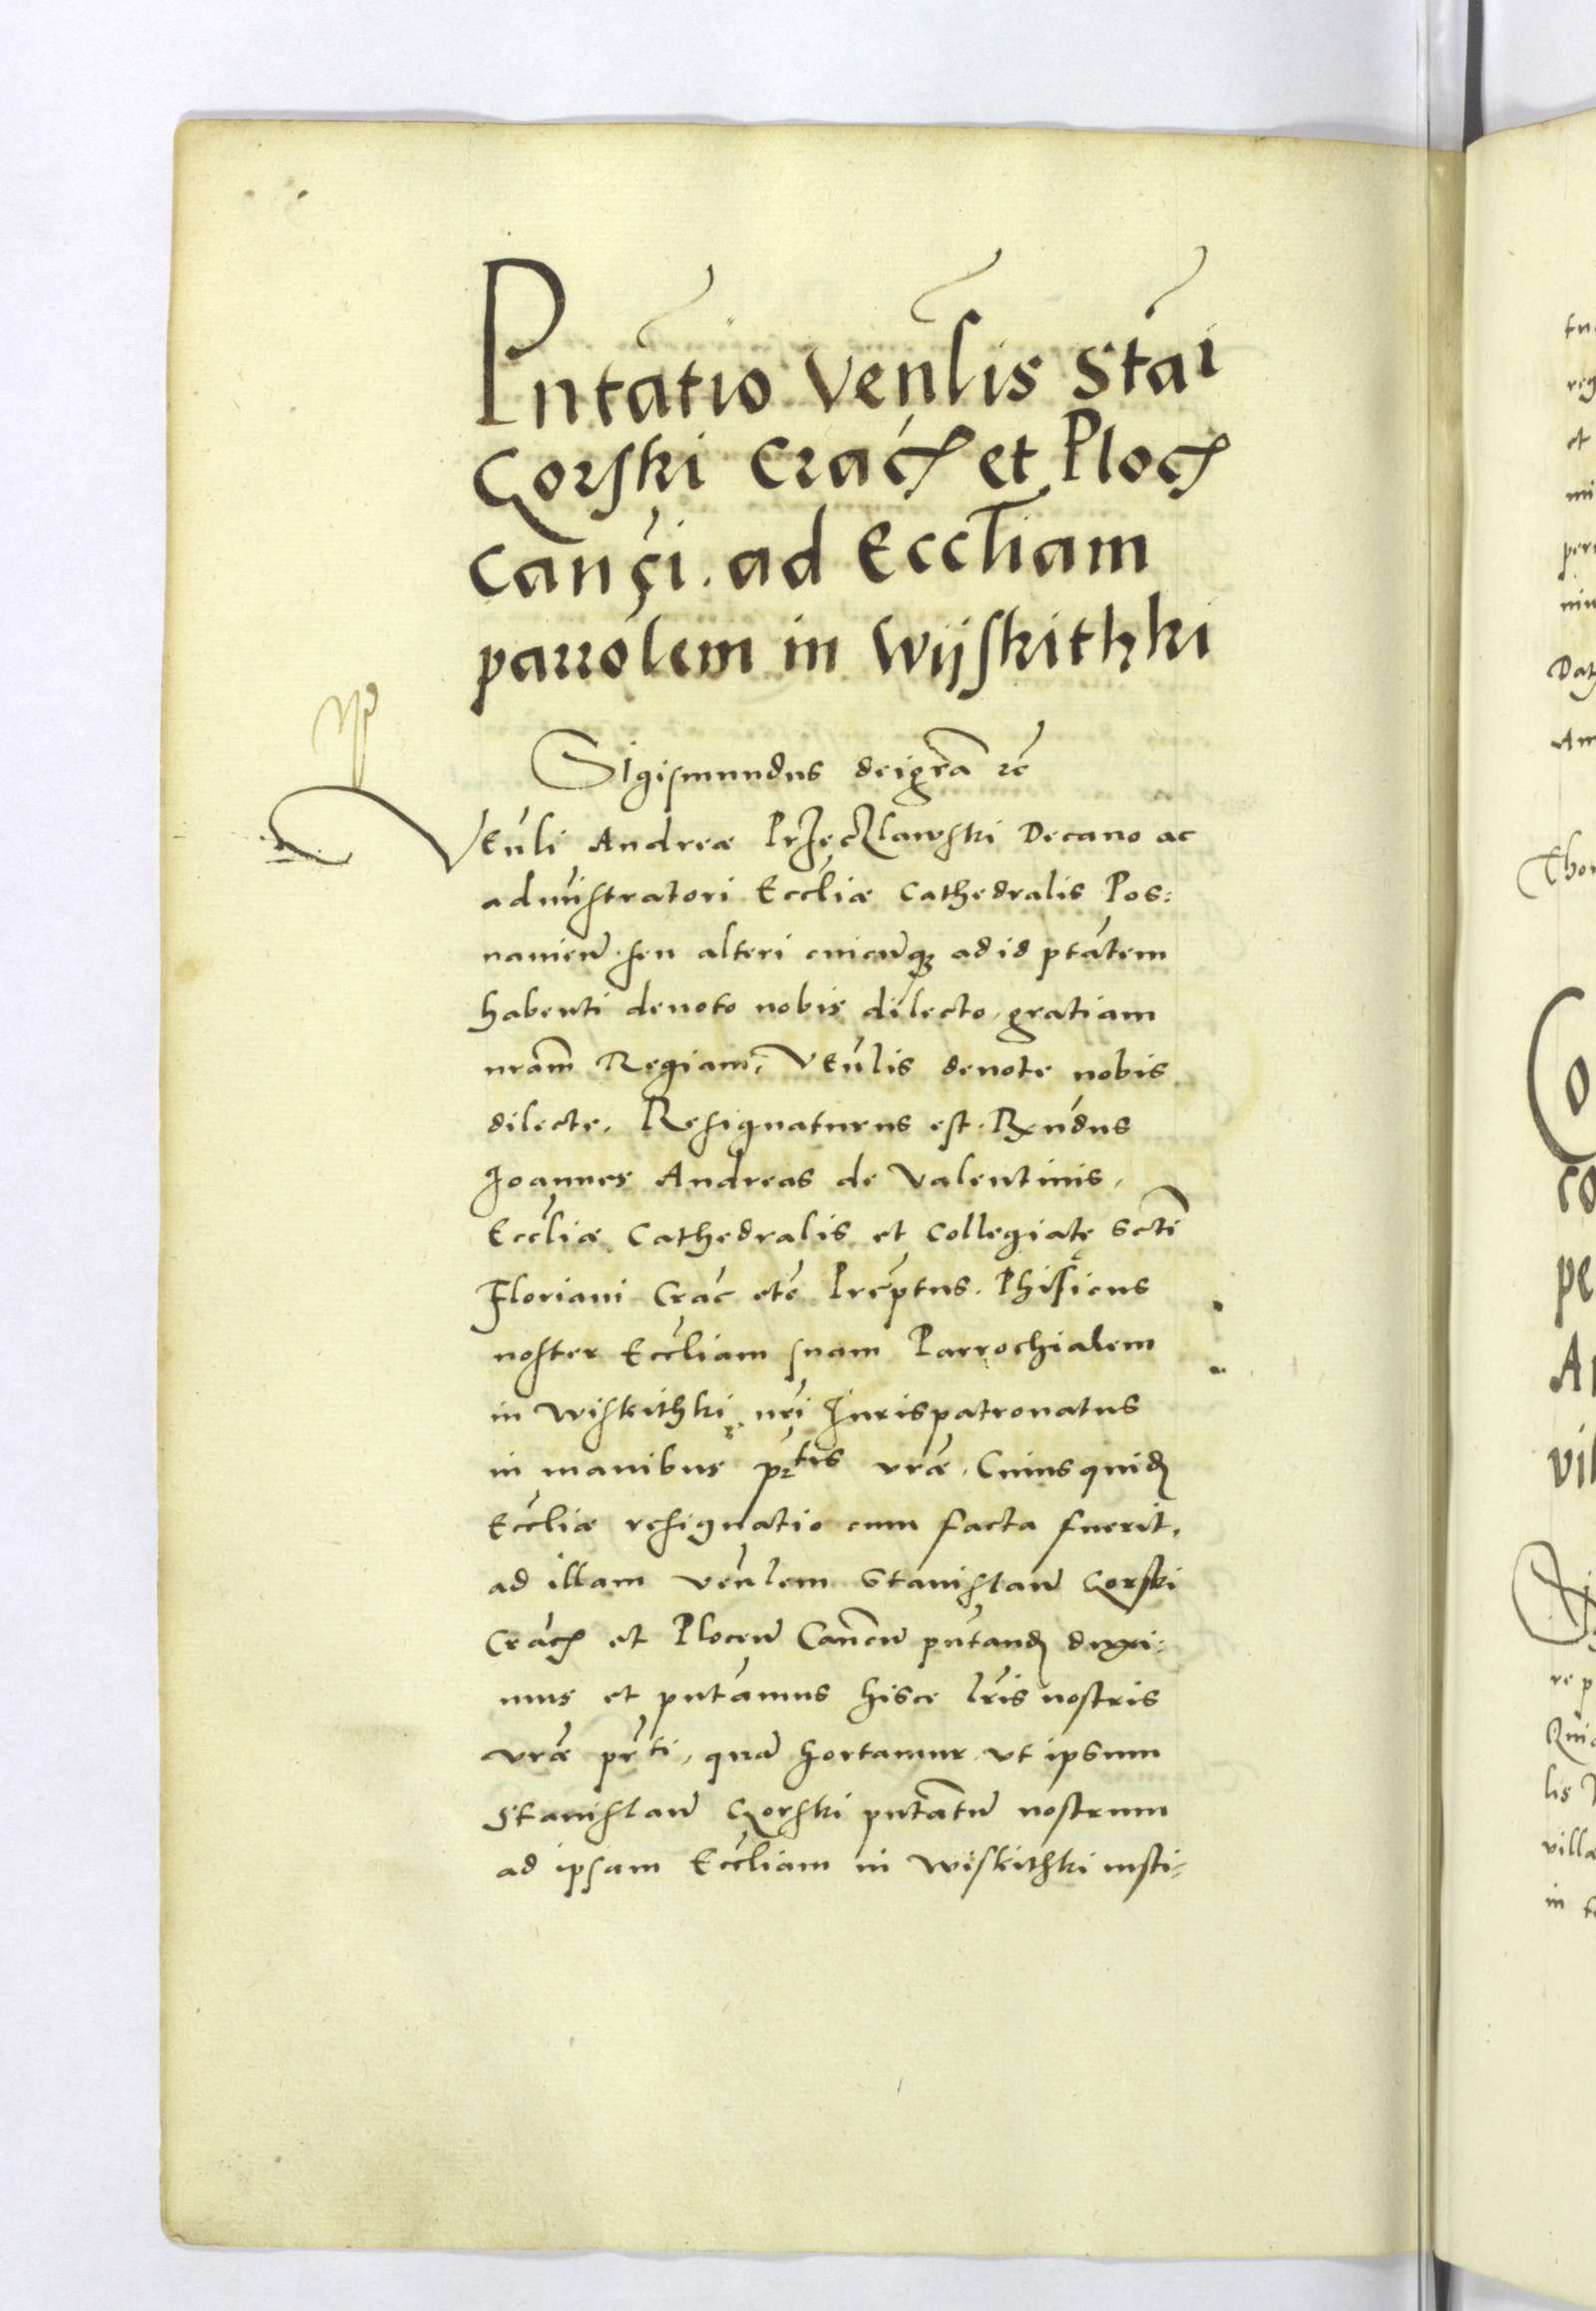 Pntatio Venlis Stai
Gorski Crac et Ploc
Canci. ad Eccliam
parrolem in Wijskithki
Sigismundus dei gra etc
Venli Andreæ Przeczlawski Decano ac
admistratori Eccliæ Cathedralis Pos:
nanien seu alteri cuicunq ad id ptatem
habenti devoto nobis dilecto, gratiam
nram Regiam, Venlis devote nobis
dilecte. Resignaturus est Rndus
Joannes Andreas de Valentinis,
Eccliæ Cathedralis et Collegiatę Scti
Floriani Crac etc Preptus. Phisicus
noster Eccliam suam Parrochialem
in Wiskithki nri Jurispatronatus
in manibus prtis vræ. Cuius quid
Eccliæ resignatio cum facta fuerit,
ad illam venlem Stanislau Gorski
Crac et Plocen Cancu pntand duxi:
mus et pntamus hisce lris nostris
vræ prti, qua hortamur ut ipsum
Stanislau Gorski pntatu nostrum
ad ipsam Eccliam in Wiskithki insti-
fn
reg
et
mi
per
Dat
Am
Thor
co
pe
vil
re p
lis
villa
in